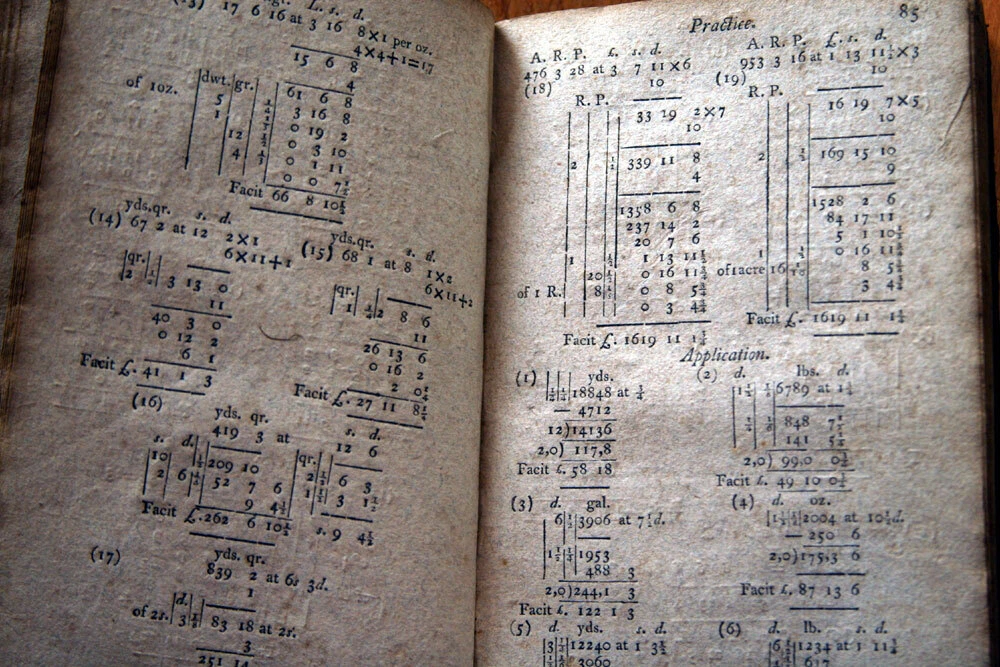 17 6 16 at 3 16 8×1 per oz.
4×4+1=17
15 6 8
4
dwt. gr.
of 1oz.
61 6 8
5 3 16 8
1 0 19 2
12 0 3 10
4 0 1 11
0 0 7½
Facit 66 8 10½
yds. qr. s. d.
(14) 67 2 at 12 2×1
6×11+1
qr.
2 ½ 3 13 0
11
40 3 0
0 12 2
6 1
Facit £. 41 1 3
yds. qr. s. d.
(15) 68 1 at 8 1×2
6×11+2
qr.
1 ¼ 2 8 6
11
26 13 6
0 16 2
2 0¼
Facit £. 27 11 8¼
(16)
yds. qr. s. d.
419 3 at 12 6
s. d. qr.
10 ½ 209 10 2 ½ 6 3
2 6 ¼ 52 7 6 1 ½ 3 1½
9 4½
Facit £. 262 6 10½ s. 9 4½
(17)
yds. qr.
839 2 at 6s 3d.
1
d.
of 2s. 3 ⅛ 83 18 at 2s.
3
251 14
Practice. 85
A. R. P. £. s. d.
476 3 28 at 3 7 11×6
(18) 10
R. P.
33 19 2×7
10
2 ½ 339 11 8
4
1358 6 8
237 14 2
20 7 6
1 ½ 1 13 11½
20 ½ 0 16 11¾
of 1 R. 8 0 8 5¾
0 3 4¾
Facit £. 1619 11 1½
A. R. P. £. s. d.
953 3 16 at 1 13 11½×3
(19) 10
R. P.
16 19 7×5
10
2 ½ 169 15 10
9
1528 2 6
84 17 11
5 1 10½
1 ½ 0 16 11¾
of 1 acre 16 8 5¾
3 4¾
Facit £. 1619 11 1½
Application.
(1) yds.
18848 at ¾
4712
12)14136
2,0) 117,8
Facit £. 58 18
(2) d. lbs. d.
1½ ⅛ 6789 at 1¾
848 7½
141 5¼
2,0) 99,0
Facit £. 49 10
(3) d. gal.
6 3906 at 7½d.
1½ ¼ 1953
488 3
2,0)244,1 3
Facit £. 122 1 3
(4) d. oz.
2004 at 10½d.
250 6
2,0)175,3 6
Facit £. 87 13 6
(5) d. yds. s. d.
3 12240 at 1 3¾
3060
(6) d. lb. s. d.
6 1234 at 1
617